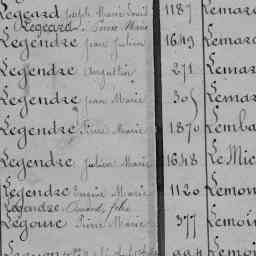 Legeard Joseph Marie Louis 1187 Lemar
Legeard Pierre Marie
Legendre Jean Julien 1649 Lemar
Legendre Augustin 271 Lemar
Legendre Jean Marie 305 Lemar
Legendre Pierre Marie 1870 Lemba
Legendre Julien Marie 1648 Le Mic
Legendre Eugène Marie 1120 Lemon
Legendre Amand, félix
Legouic Pierre Marie 377 Lemoi